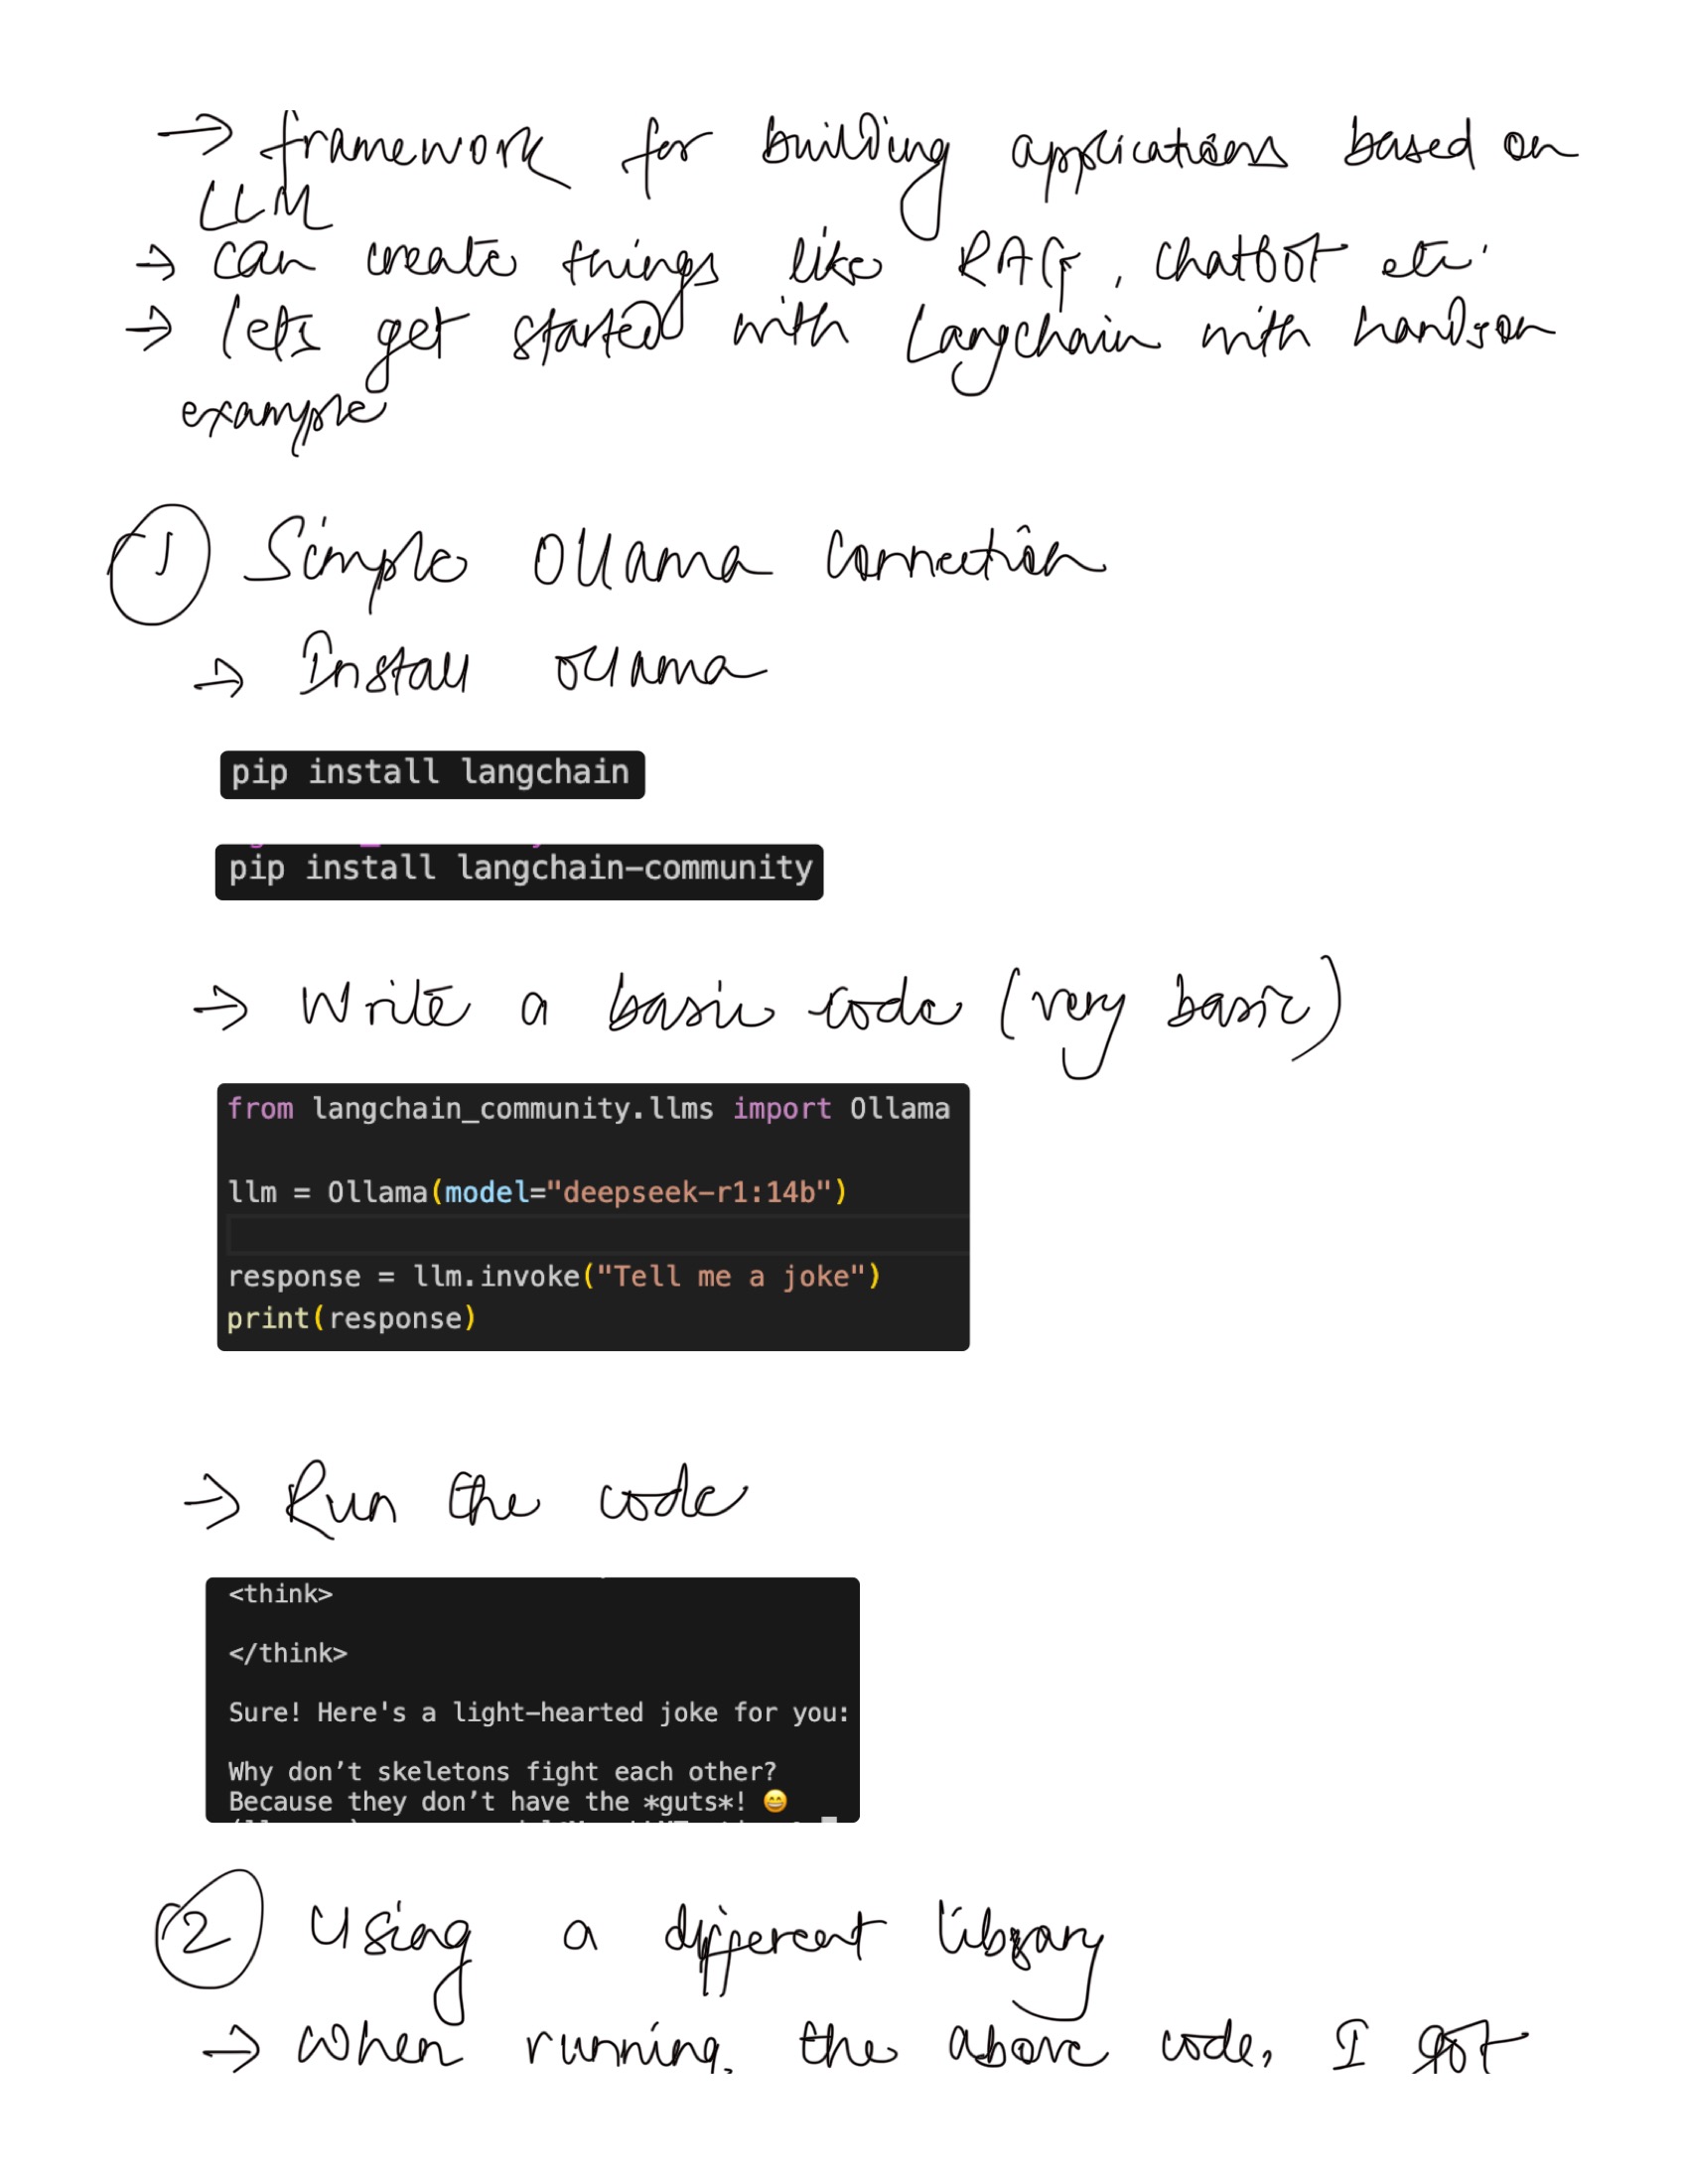 → framework for building applications based on
LLM
→ can create things like RAG, chatbot etc.
→ lets get started with Langchain with handson
example
① Simple Ollama Connection
→ Install ollama
pip install langchain
pip install langchain-community
→ Write a basic code (very basic)
from langchain_community.llms import Ollama
llm = Ollama(model="deepseek-r1:14b")
response = llm.invoke("Tell me a joke")
print(response)
→ Run the code
<think>
</think>
Sure! Here's a light-hearted joke for you:
Why don’t skeletons fight each other?
Because they don’t have the *guts*! 😄
② Using a different library
→ When running the above code, I got